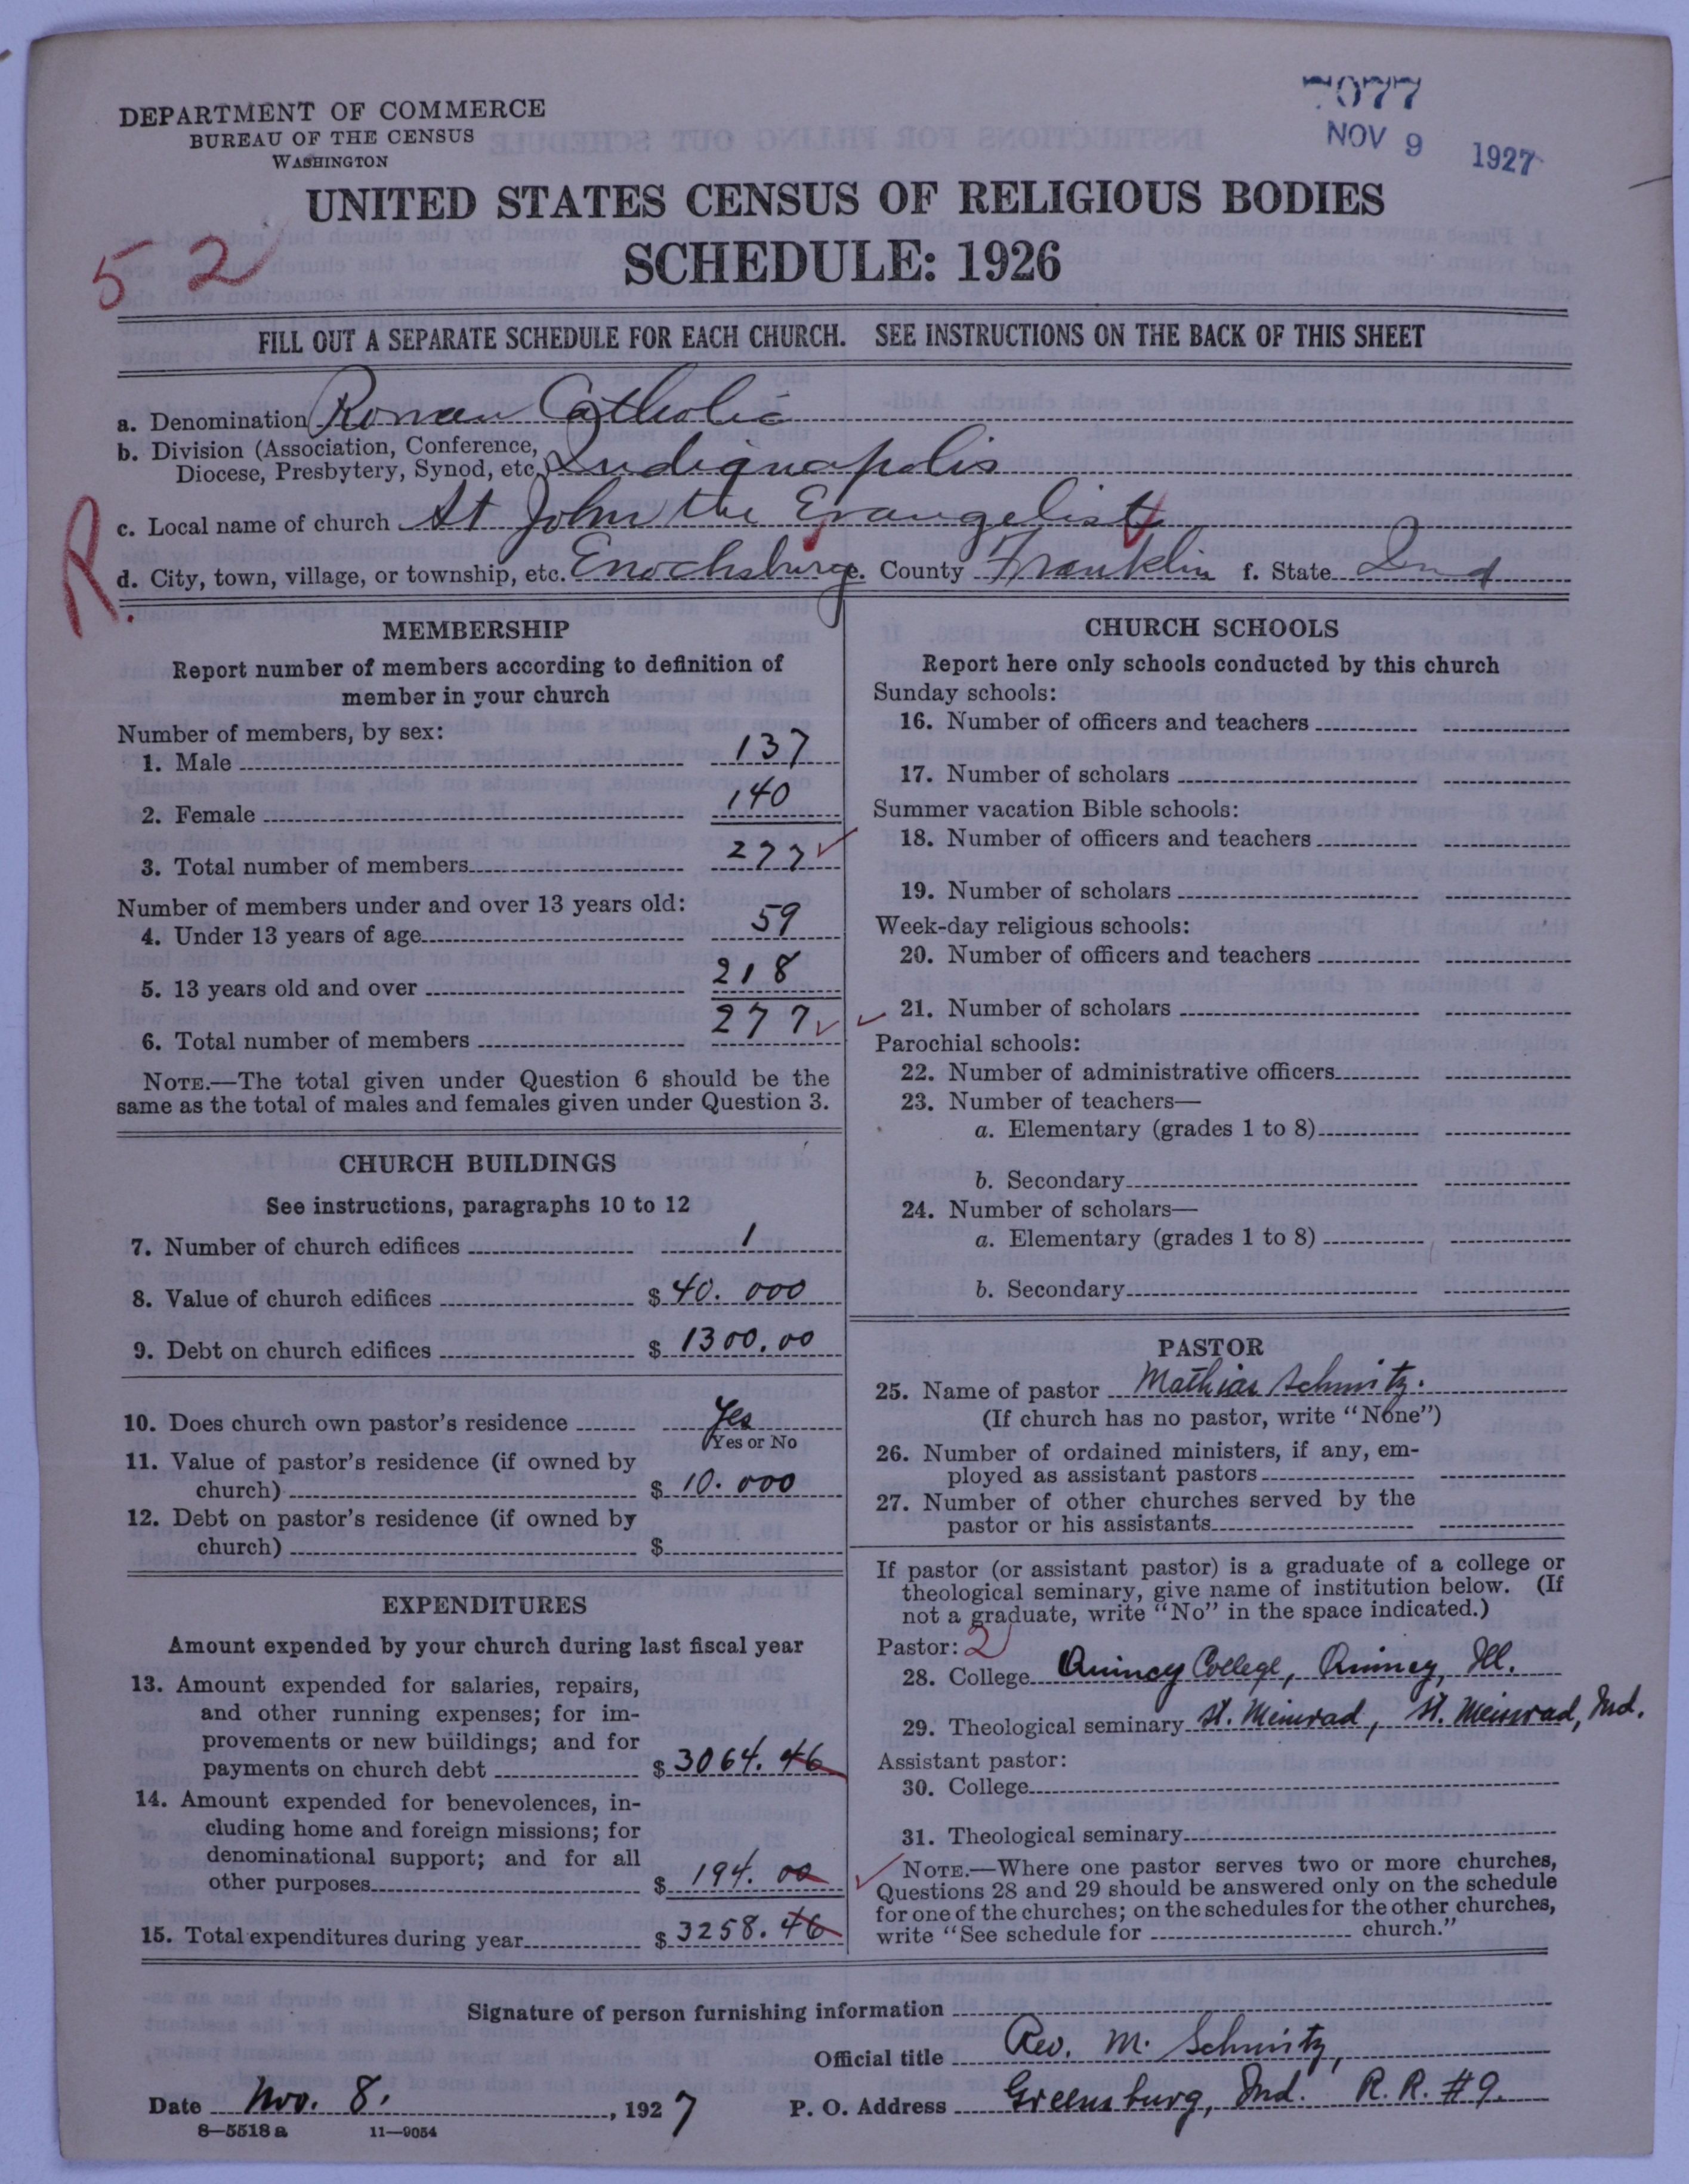 7077
NOV 9 1927
DEPARTMENT OF COMMERCE
BUREAU OF THE CENSUS
WASHINGTON
UNITED STATES CENSUS OF RELIGIOUS BODIES
SCHEDULE: 1926
52
FILL OUT A SEPARATE SCHEDULE FOR EACH CHURCH. SEE INSTRUCTIONS ON THE BACK OF THIS SHEET
a. Denomination Roman Catholic
b. Division (Association, Conference,
Diocese, Presbytery, Synod, etc.) Indianapolis
c. Local name of church St John the Evangelist
R.
d. City, town, village, or township, etc. Enochsburg e. County Franklin f. State Ind
MEMBERSHIP
Report number of members according to definition of
member in your church
Number of members, by sex:
1. Male 137
2. Female 140
3. Total number of members 277
Number of members under and over 13 years old:
4. Under 13 years of age 59
5. 13 years old and over 218
6. Total number of members 277
NOTE.—The total given under Question 6 should be the
same as the total of males and females given under Question 3.
CHURCH BUILDINGS
See instructions, paragraphs 10 to 12
7. Number of church edifices 1
8. Value of church edifices $ 40.000
9. Debt on church edifices $ 1300.00
10. Does church own pastor's residence Yes
Yes or No
11. Value of pastor's residence (if owned by
church) $ 10.000
12. Debt on pastor's residence (if owned by
church) $
EXPENDITURES
Amount expended by your church during last fiscal year
13. Amount expended for salaries, repairs,
and other running expenses; for im-
provements or new buildings; and for
payments on church debt $ 3064.46
14. Amount expended for benevolences, in-
cluding home and foreign missions; for
denominational support; and for all
other purposes $ 194.00
15. Total expenditures during year $ 3258.46
CHURCH SCHOOLS
Report here only schools conducted by this church
Sunday schools:
16. Number of officers and teachers
17. Number of scholars
Summer vacation Bible schools:
18. Number of officers and teachers
19. Number of scholars
Week-day religious schools:
20. Number of officers and teachers
21. Number of scholars
Parochial schools:
22. Number of administrative officers
23. Number of teachers—
a. Elementary (grades 1 to 8)
b. Secondary
24. Number of scholars—
a. Elementary (grades 1 to 8)
b. Secondary
PASTOR
25. Name of pastor Mathias Schmitz.
(If church has no pastor, write "None")
26. Number of ordained ministers, if any, em-
ployed as assistant pastors
27. Number of other churches served by the
pastor or his assistants
If pastor (or assistant pastor) is a graduate of a college or
theological seminary, give name of institution below. (If
not a graduate, write "No" in the space indicated.)
Pastor: 2
28. College Quincy College, Quincy, Ill.
29. Theological seminary St. Meinrad, St. Meinrad, Ind.
Assistant pastor:
30. College
31. Theological seminary
NOTE.—Where one pastor serves two or more churches,
Questions 28 and 29 should be answered only on the schedule
for one of the churches; on the schedules for the other churches,
write "See schedule for church."
Signature of person furnishing information
Official title Rev. M. Schmitz,
Date Nov. 8. , 1927 P. O. Address Greensburg, Ind. R. R. #9.
8—5518a 11—9054